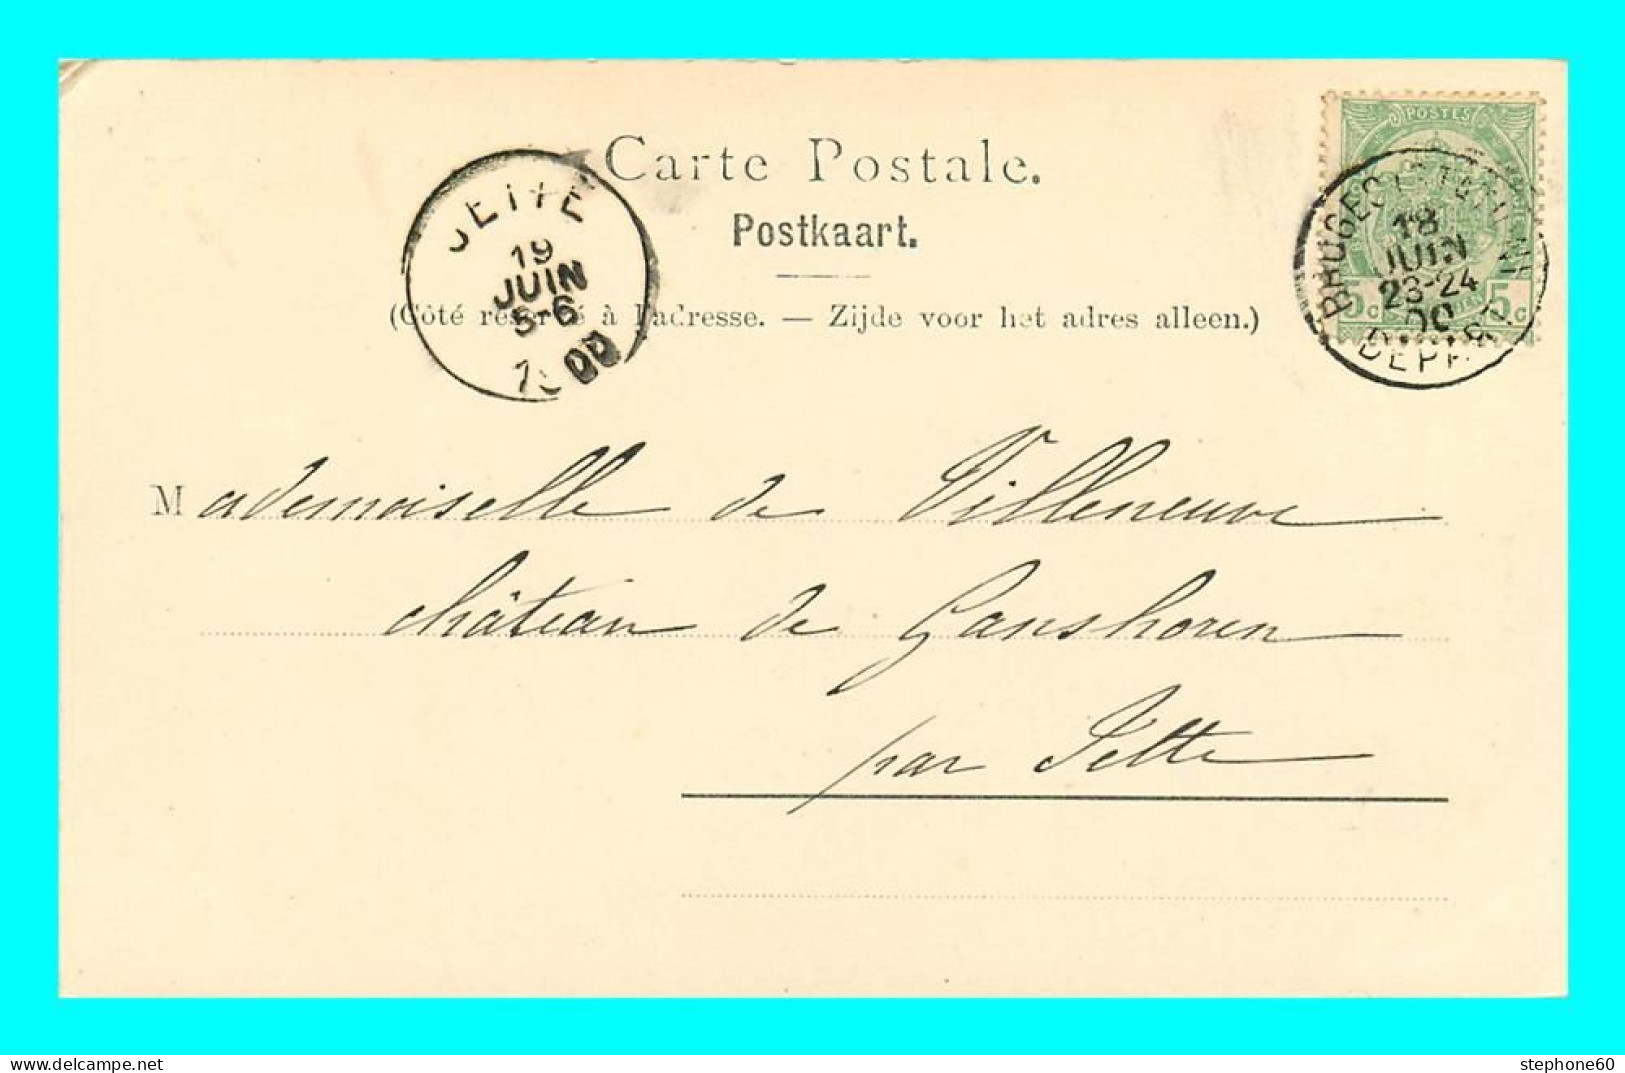 POSTES
Carte Postale.
Postkaart.
(Côté réservé à l'adresse. — Zijde voor het adres alleen.)
JETTE
19
JUIN
5-6
BRUGES
18
JUIN
23-24
00
DEPART
5c 5c
Mademoiselle de Villeneuve
château de Ganshoren
par Jette
stephone60